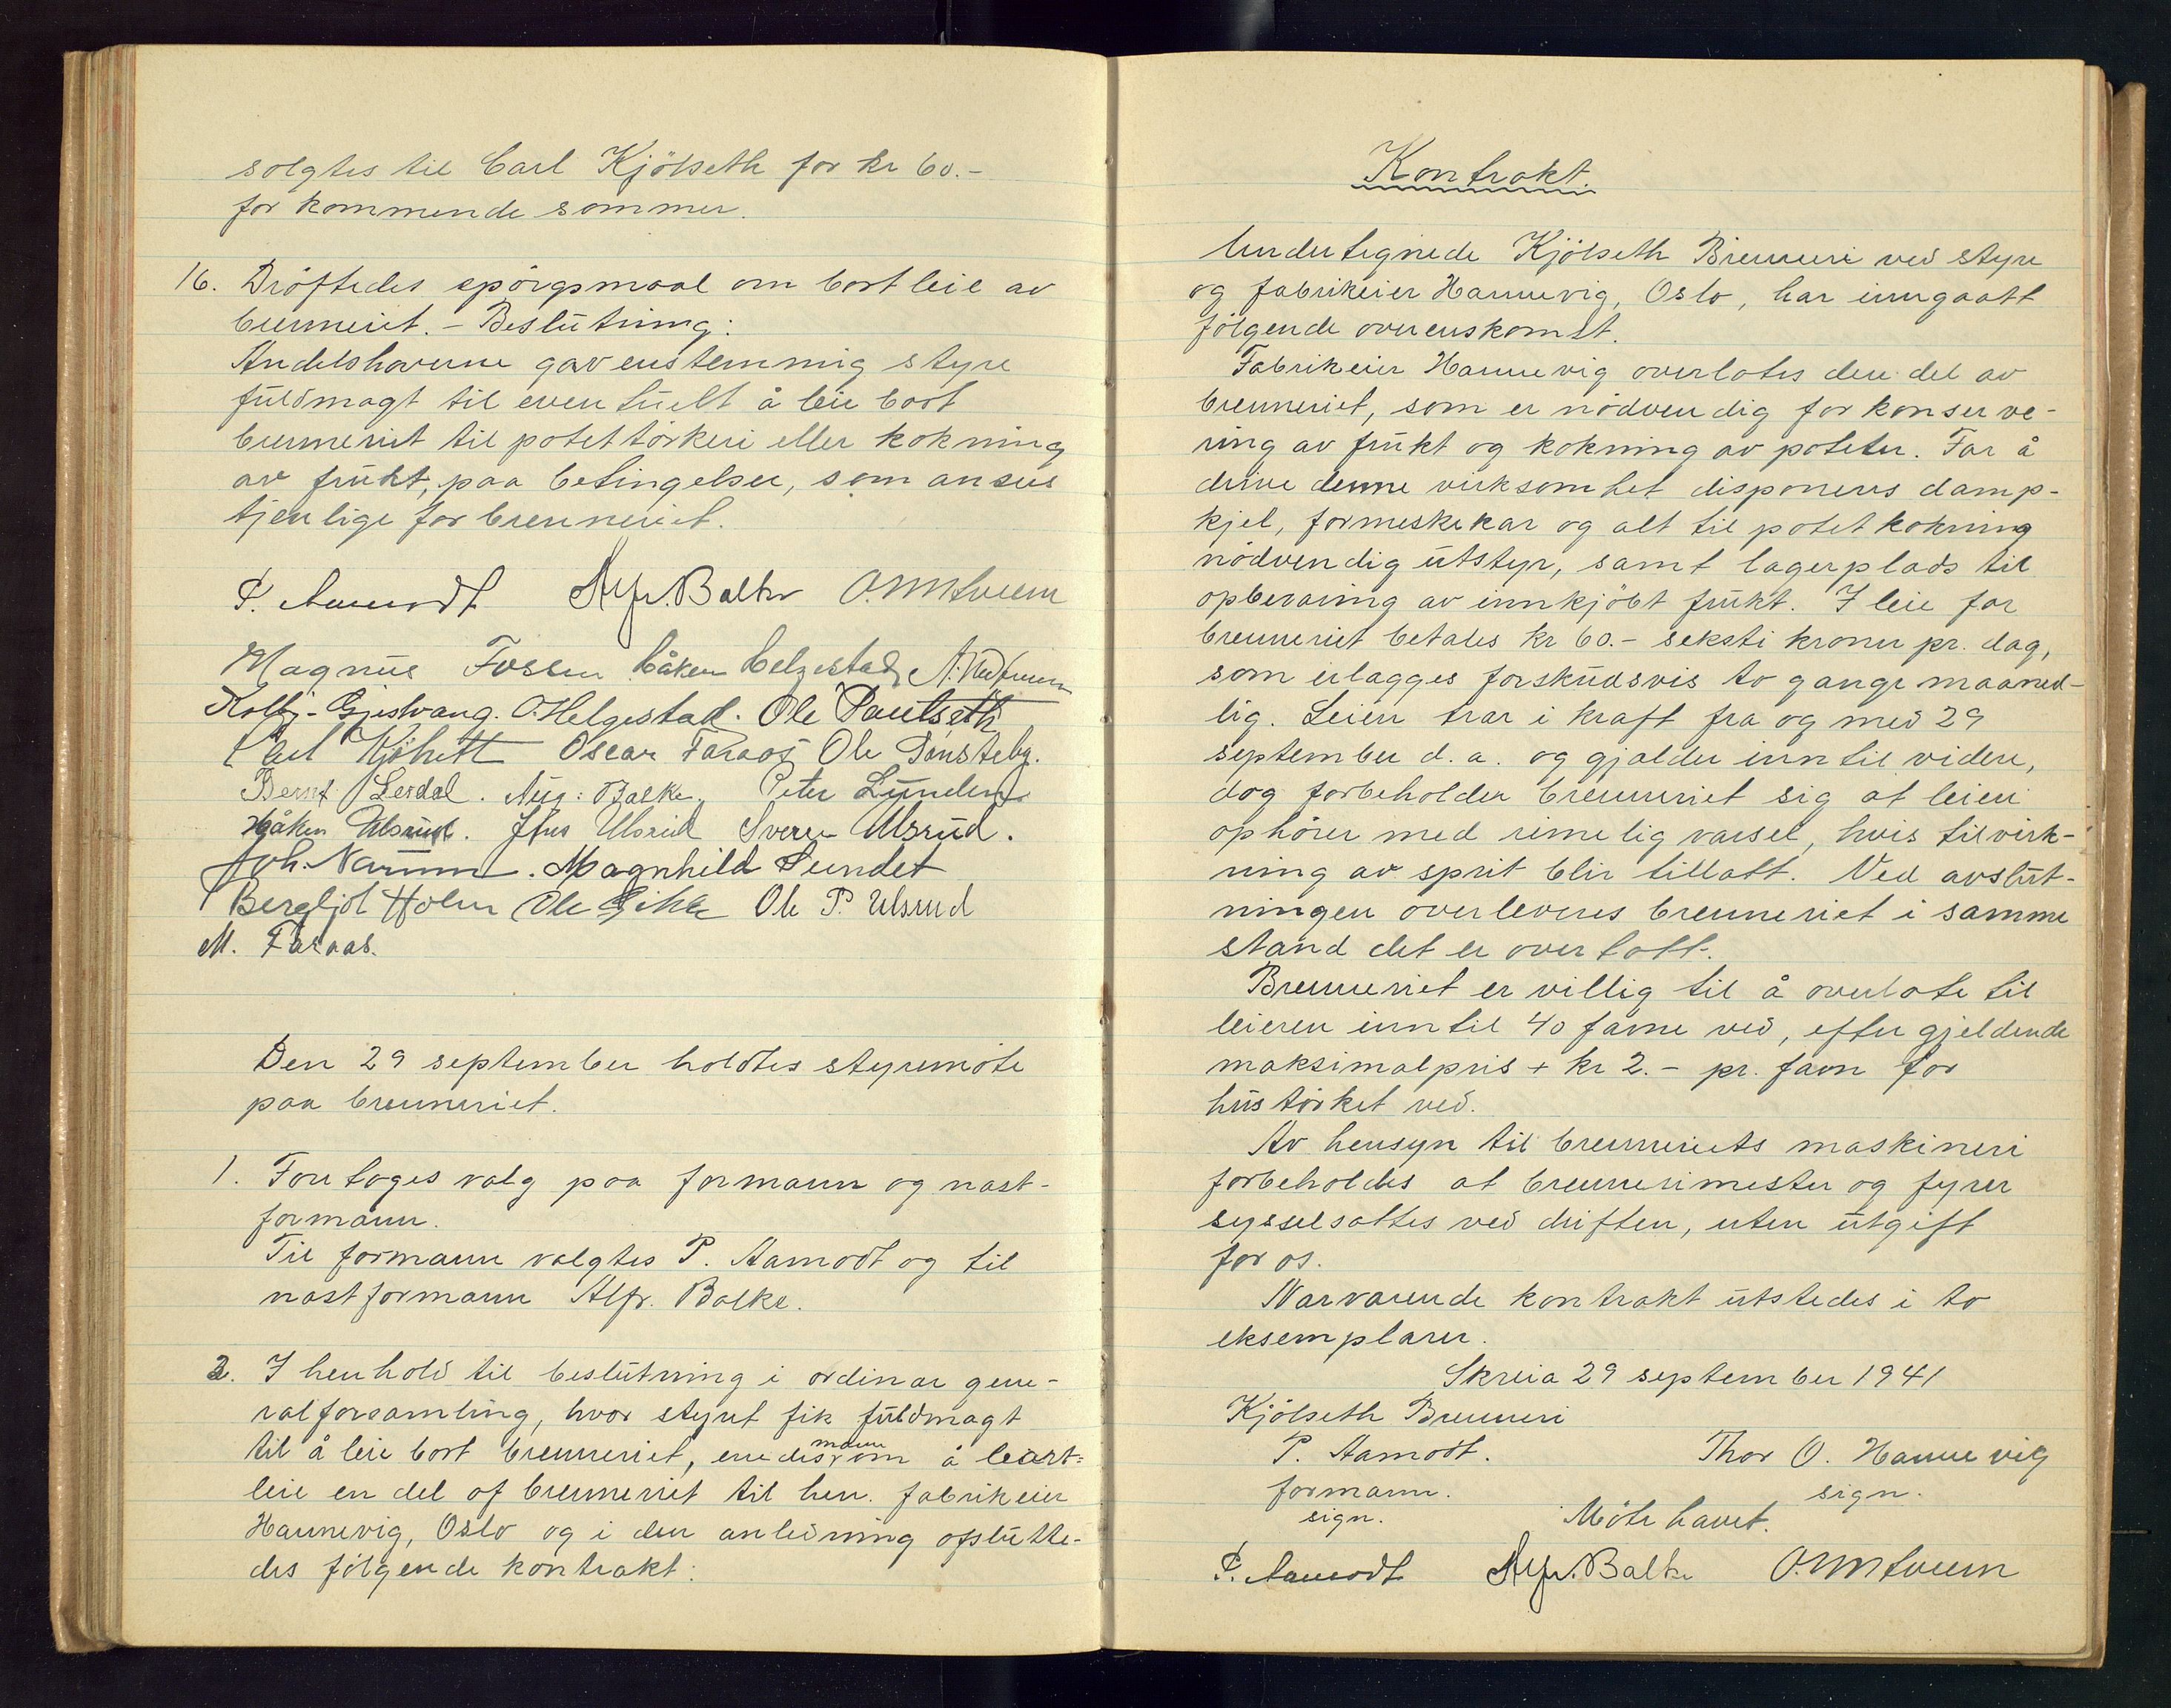 solgtes til Carl Kjölseth for kr 60.-
for kommende sommer.
16. Dröftedes spörgsmaal om bortleie av
brenneriet. - Beslutning:
Andelshaverne gav enstemmig styre
fuldmagt til eventuelt å leie bort
brenneriet til potettörkeri eller kokning
av frukt, paa betingelser, som ansees
tjenlige for brenneriet.
P. Aamodt Alfr. Balke
Magnus Fossen Håken Helgestad
Kolbj. Gjestvang. O. Helgestad. Ole Paulseth
Carl Kjölseth Oscar Faraas Ole Tønsteby.
Bernt Lerdal. Aug: Balke. Peter Lunden
Håken Ulsrud. Jhs Ulsrud Sverre Ulsrud.
Joh. Narum. Magnhild Sundet
Bergljot Holm Ole Gihle Ole P. Ulsrud
M. Faraas.
Den 29 september holdtes styremöte
paa brenneriet.
1. Foretoges valg paa formann og næst-
formann.
Til formann valgtes P. Aamodt og til
næstformann Alfr. Balke.
2. I henhold til beslutning i ordinær gene-
ralforsamling, hvor styret fik fuldmagt
til å leie bort brenneriet, enedes mann om å bort-
leie en del af brenneriet til herr. fabrikeier
Hannevig, Oslo og i den anledning afslutte-
des fölgende kontrakt:
Kontrakt.
Undertegnede Kjölseth Brenneri ved styre
og fabrikeier Hannevig, Oslo, har inngaatt
fölgende overenskomst.
Fabrikeier Hannevig overlates den del av
brenneriet, som er nödvendig for konserve-
ring av frukt og kokning av poteter. For å
drive denne virksomhet disponeres damp-
kjel, formeskekar og alt til potetkokning
nödvendig utstyr, samt lagerplads til
opbevaring av innkjöbt frukt. I leie for
brenneriet betales kr 60.- seksti kroner pr. dag,
som erlægges forskudsvis to gange maaned-
lig. Leien trær i kraft fra og med 29
september d. a. og gjælder inntil videre,
dog forbeholder brenneriet sig at leien
ophörer med rimelig varsel, hvis tilvirk-
ning av sprit blir tillatt. Ved avslut-
ningen overleveres brenneriet i samme
stand det er overtatt.
Brenneriet er villig til å overlate til
leieren inntil 40 favne ved, efter gjeldende
maksimalpris + kr 2.- pr. favn for
hustörket ved.
Av hensyn til brenneriets maskineri
forbeholdes at brennerimester og fyrer
sysselsattes ved driften, uten utgift
for os.
Nærværende kontrakt utstedes i to
eksemplarer.
Skreia 29 september 1941
Kjölseth Brenneri
P. Aamodt. Thor O. Hannevig
formann. sign.
sign.
Möte hævet.
P. Aamodt Alfr. Balke